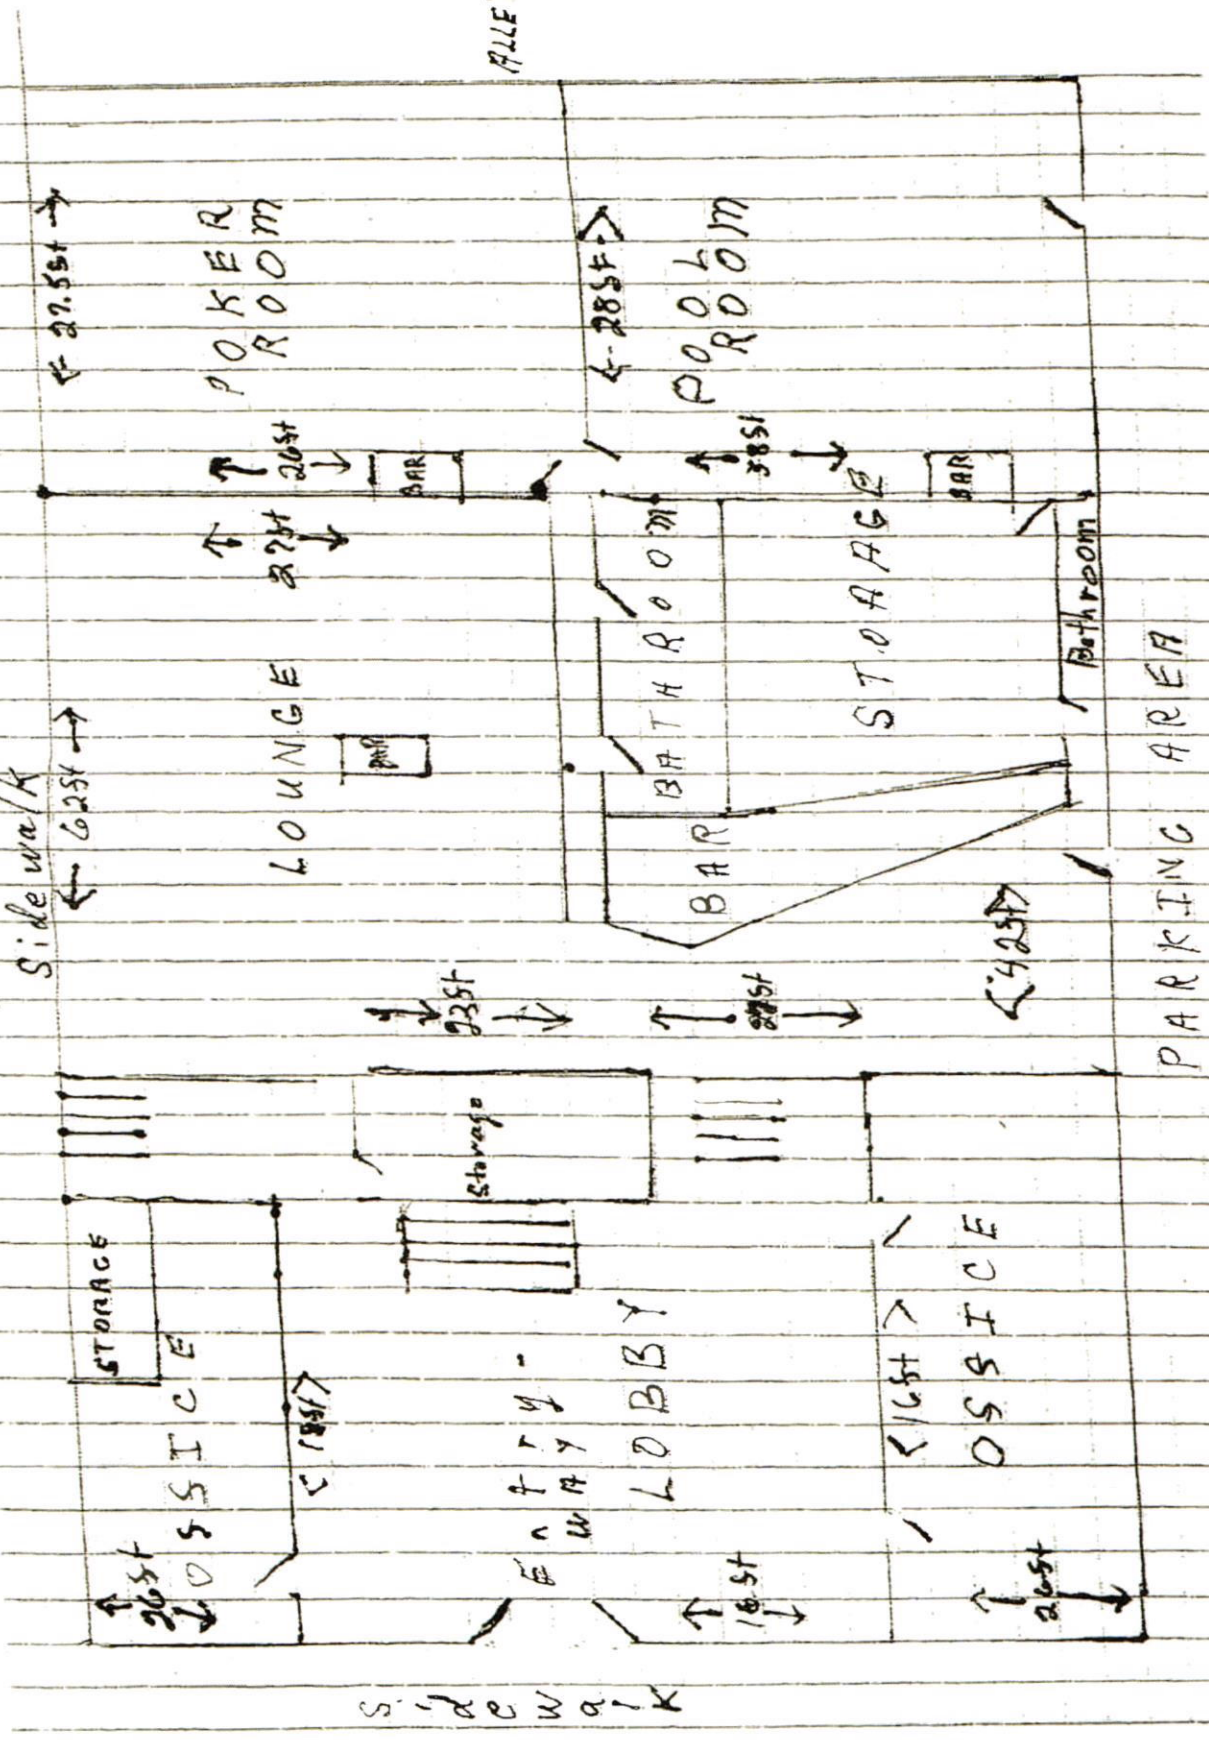 Sidewalk
← 62ft →
← 27.5ft →
ALLE
POKER
ROOM
26ft
BAR
27ft
LOUNGE
BAR
← 28ft →
POOL
ROOM
38ft
BAR
BATHROOM
STOAAGE
Bathroom
BAR
23ft
<42ft>
PARKING AREA
Storage
STORAGE
OFFICE
26ft
<18ft>
Entry-
WAY
LOBBY
16ft
<16ft>
OFFICE
26ft
Sidewalk